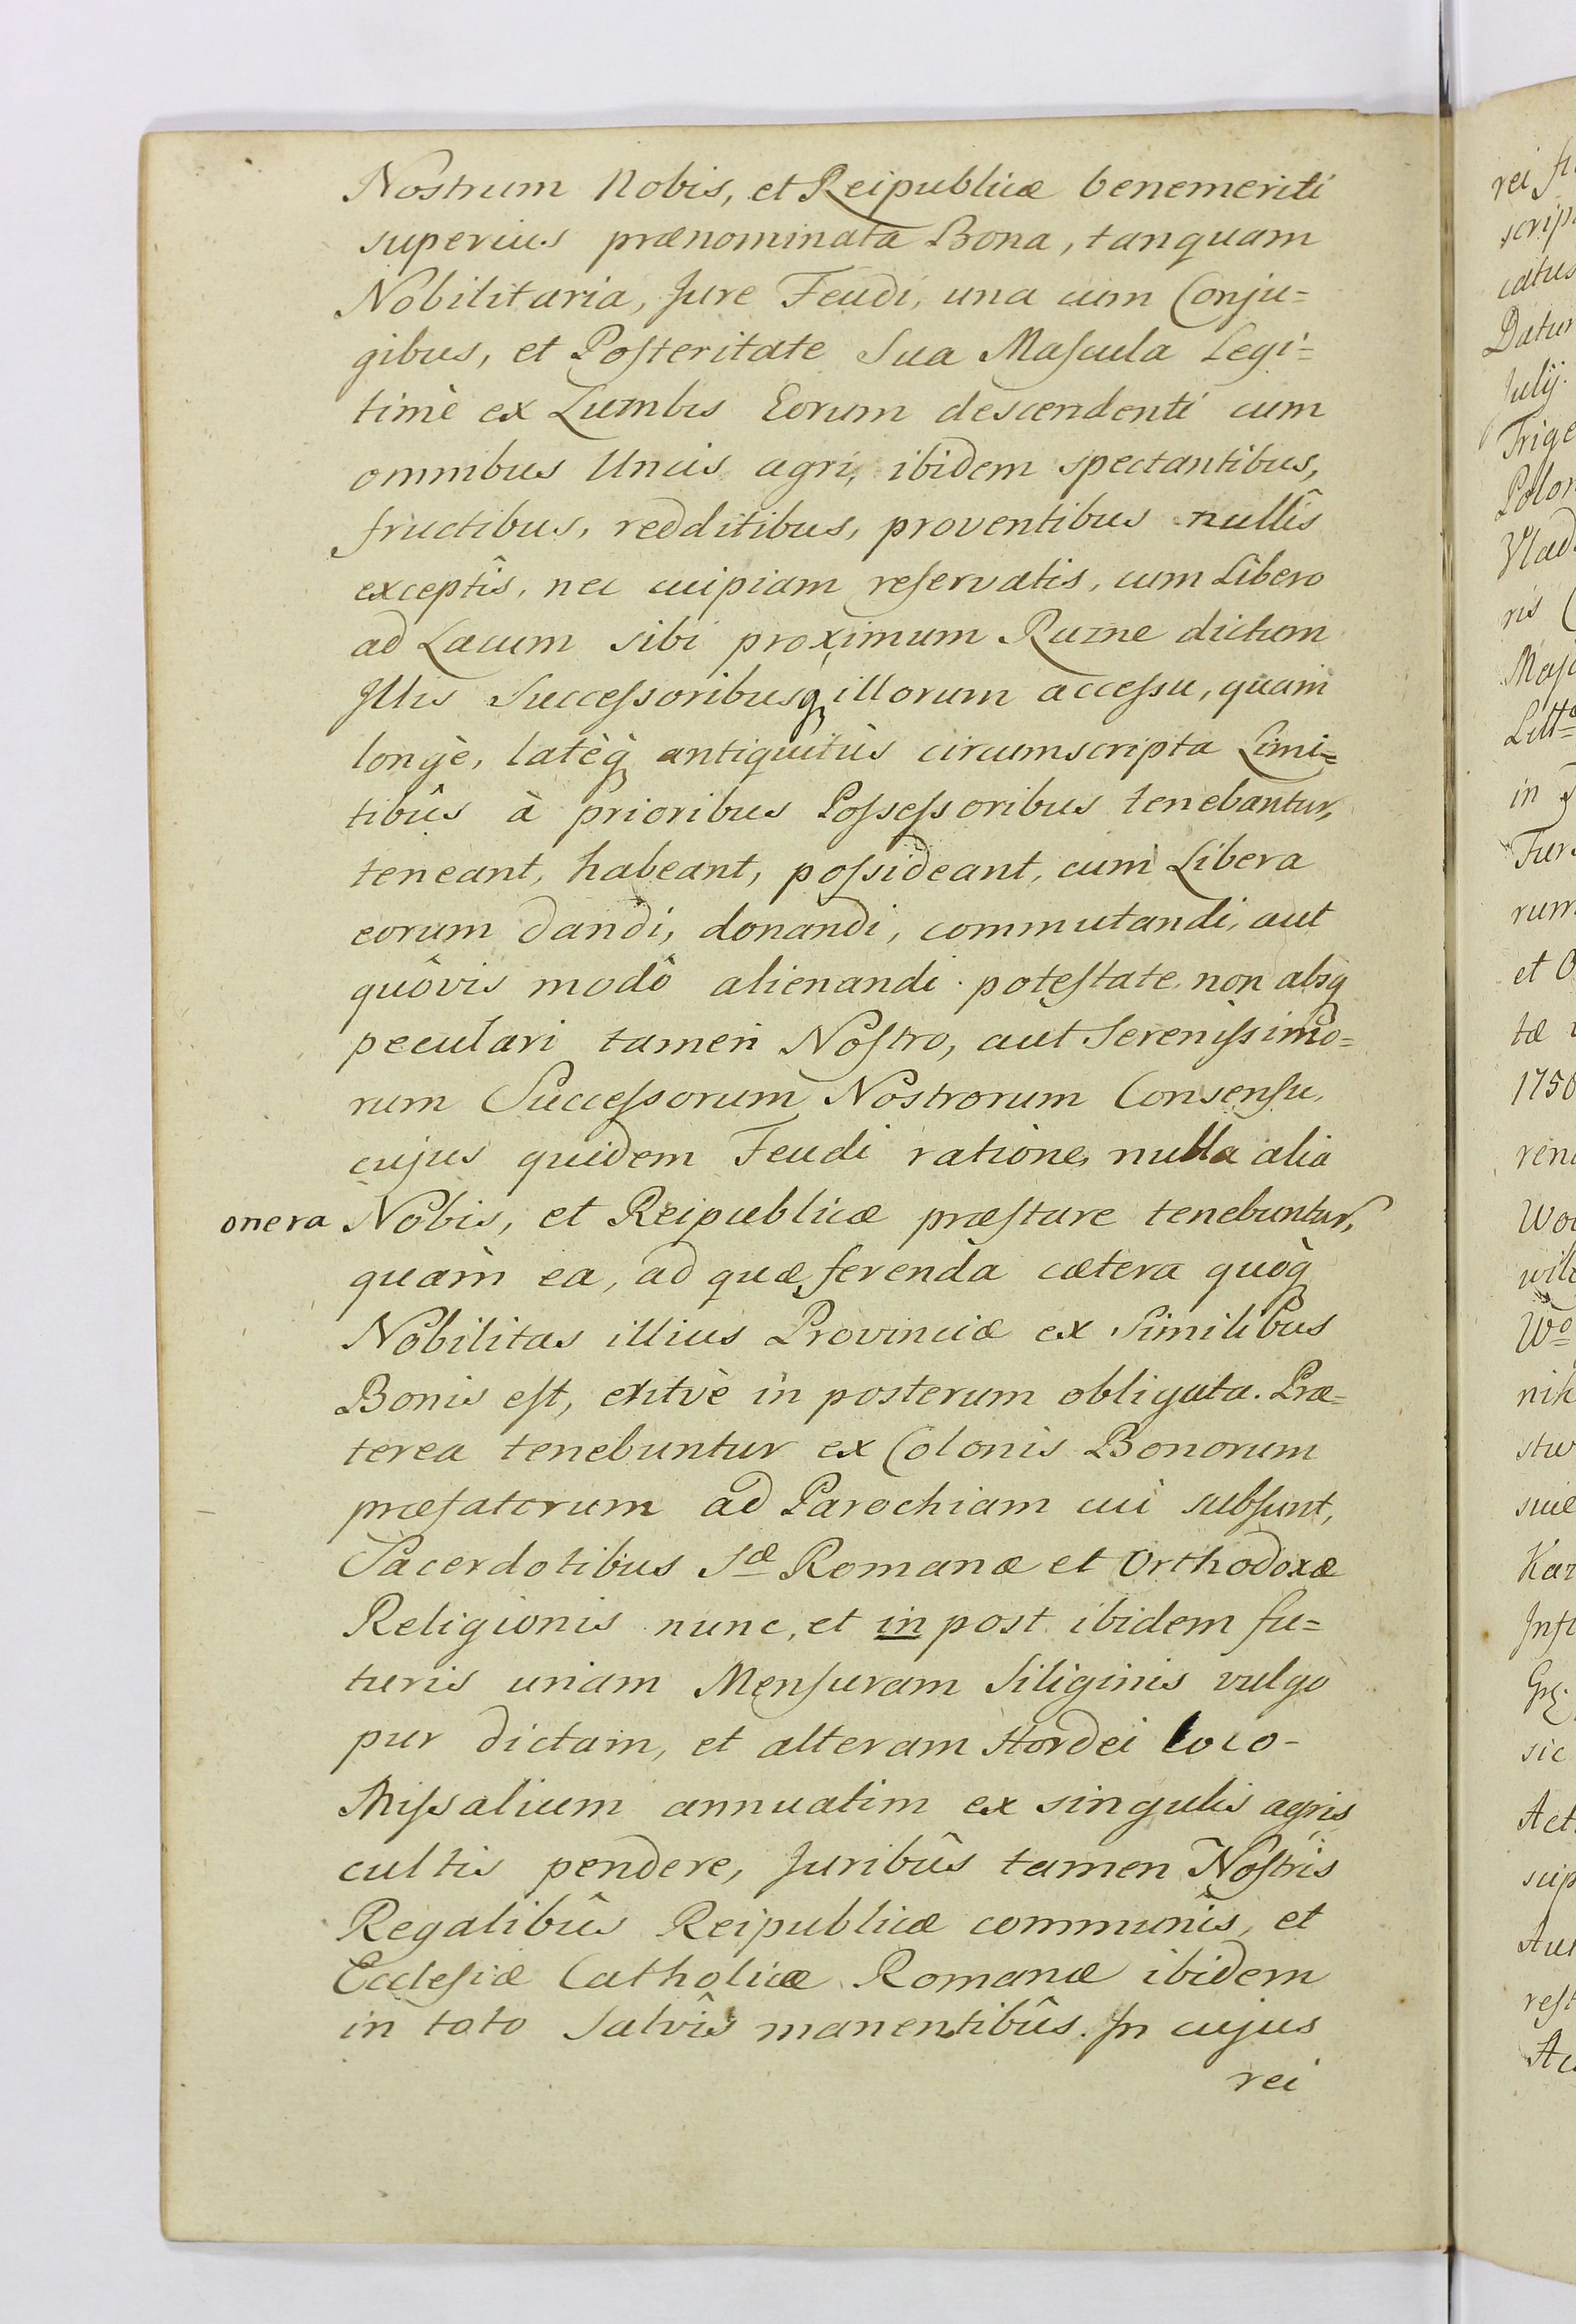 Nostrum Nobis, et Reipublicæ benemeriti
superius prænominata Bona, tanquam
Nobilitaria, Jure Feudi, una cum Conju=
gibus, et Posteritate Sua Mascula Legi=
timè ex Lumbis Eorum descendenti cum
omnibus Uncis agri, ibidem spectantibus,
fructibus, redditibus, proventibus nullîs
exceptîs, nec cuipiam reservatis, cum Libero
ad Lacum sibi proximum Rume dictum
Illis Successoribusq illorum accessu, quam
longè, latèq̀ antiquitùs circumscripta Limi=
tibûs à prioribus Possessoribus tenebantur,
teneant, habeant, possideant, cum Libera
eorum dandi, donandi, commutandi, aut
quôvis modô alienandi potestate, non absq
peculari tamen Nostro, aut Serenissimo=
rum Successorum Nostrorum Consensu,
cujus quidem Feudi ratione, nulla alia
onera Nobis, et Reipublicæ præstare tenebuntur,
quàm ea, ad quæ ferenda cætera quòq̀
Nobilitas illius Provinciæ ex Similibus
Bonis est, eritvè in posterum obligata. Præ=
terea tenebuntur ex Colonis Bonorum
præfatorum ad Parochiam cui subsunt,
Sacerdotibus Sæ Romanæ et Orthodoxæ
Religionis nunc, et in post ibidem fu=
turis unam Mensuram Siliginis vulgo
pur dictam, et alteram Hordei loco-
Missalium annuatim ex singulis agris
cultis pendere, Juribûs tamen Nostris
Regalibûs Reipublicæ communîs, et
Ecclesiæ Catholicæ Romanæ ibidem
in toto Salvîs manentibûs. In cujus
rei
rei
catus
July.
et
1750
sic